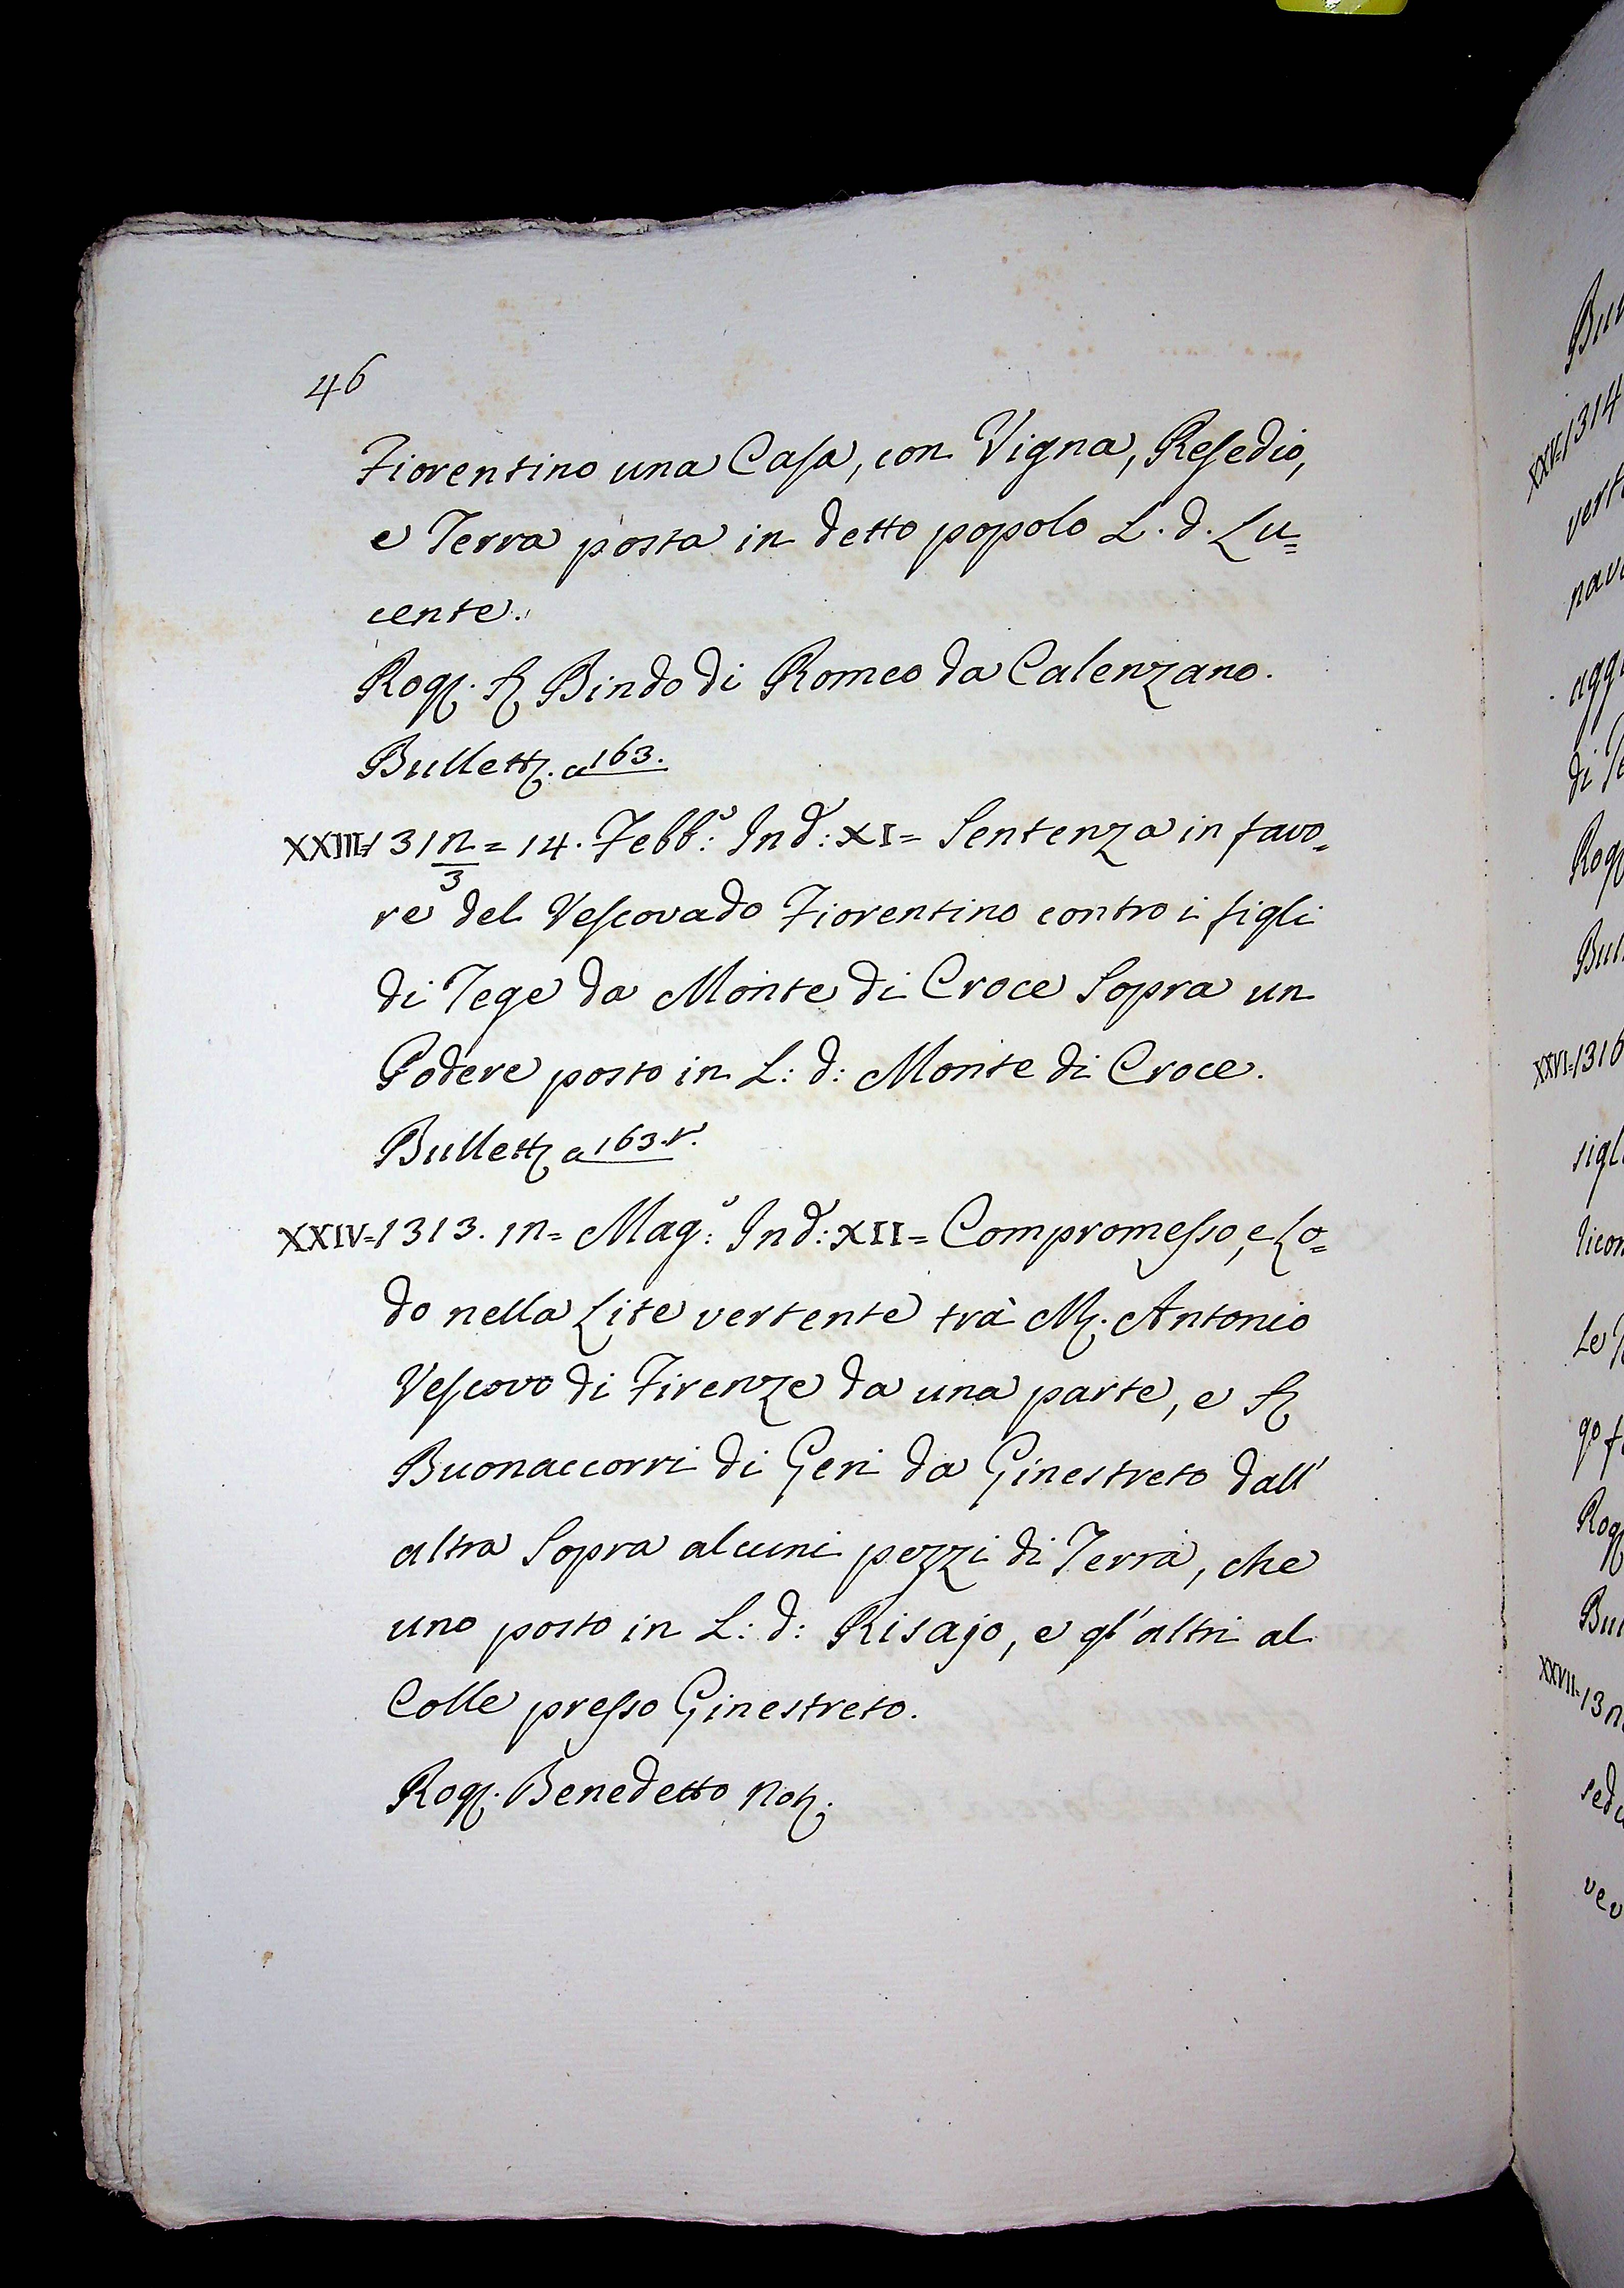 46
Fiorentino una Casa, con Vigna, Resedio,
e Terra posta in detto popolo L. d. Lu=
cente.
Rog. Bindo di Romeo da Calenzano.
Bullett. a 163.
XXIII=131n/3 = 14. Febb.o Ind: XI = Sentenza in favo=
re del Vescovado Fiorentino contro i figli
di Tege da Monte di Croce Sopra un
Podere posto in L: d: Monte di Croce.
Bullett a 163.v.
XXIV=1313. in= Mag:o Ind: XII = Compromesso, e Lo=
do nella Lite vertente trà M. Antonio
Vescovo di Firenze da una parte, e
Buonaccorri di Geri da Ginestreto dall'
altra Sopra alcuni pezzi di Terra, che
uno posto in L: d: Risajo, e gl'altri al
Colle presso Ginestreto.
Rog. Benedetto Not.
XXV=1314
vert
nav
di Te
Rog
Bul
XXVI=1316
sigl
licon
Le
Rog
Bul
XXVII=13n